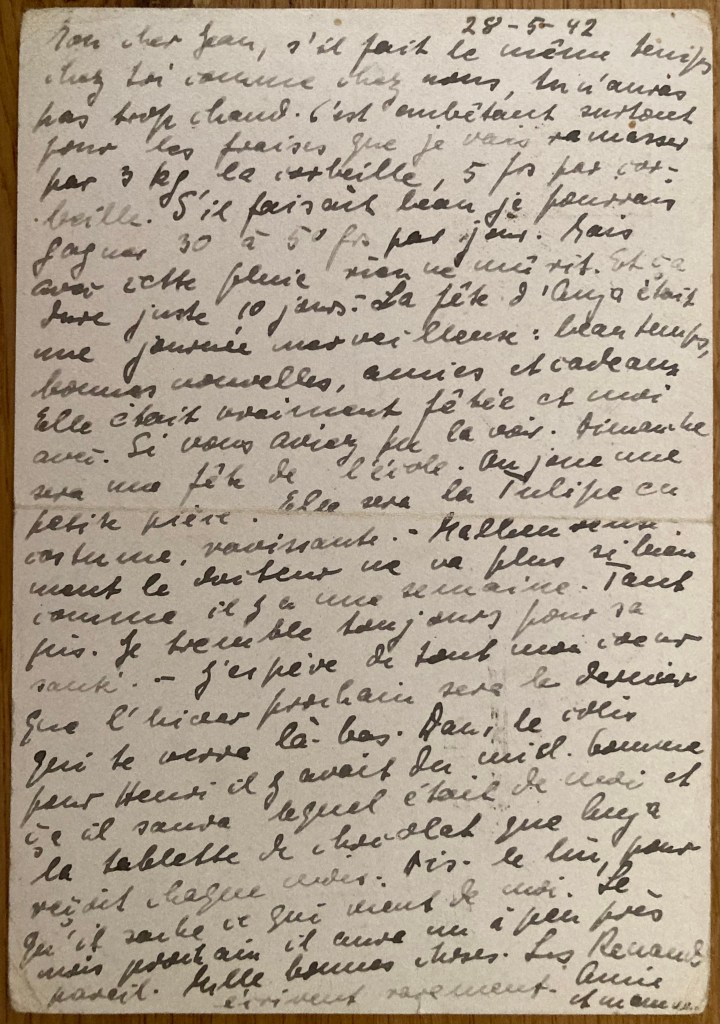 28-5-42
Mon cher Jean, s'il fait le même temps
chez toi comme chez nous, tu n'auras
pas trop chaud. C'est embêtant surtout
pour les fraises que je vais ramasser
par 3 kg la corbeille, 5 frs par cor-
beille. S'il faisait beau je pourrais
gagner 30 à 50 frs par jour. Mais
avec cette pluie rien ne mûrit. Et ça
dure juste 10 jours. - La fête d'Anja était
une journée merveilleuse: beau temps,
bonnes nouvelles, amies et cadeaux
Elle était vraiment fêtée et moi
avec. Si vous aviez pu la voir. Dimanche
sera une fête de l'école. On joue une
petite pièce. Elle sera la Tulipe en
costume, ravissante. - Malheureuse-
ment le docteur ne va plus si bien
comme il y a une semaine. Tant
pis. Je tremble toujours pour sa
santé. - J'espère de tout mon coeur
que l'hiver prochain sera le dernier
qui te verra là-bas. Dans le colis
pour Henri il y avait du miel. Comme
ça il saura lequel était de moi et
la tablette de chocolat que Anja
reçoit chaque mois. Dis-le lui, pour
qu'il sache ce qui vient de moi. Le
mois prochain il aura un à peu près
pareil. Mille bonnes choses. Les Renaud
écrivent rarement. Anie
et maman